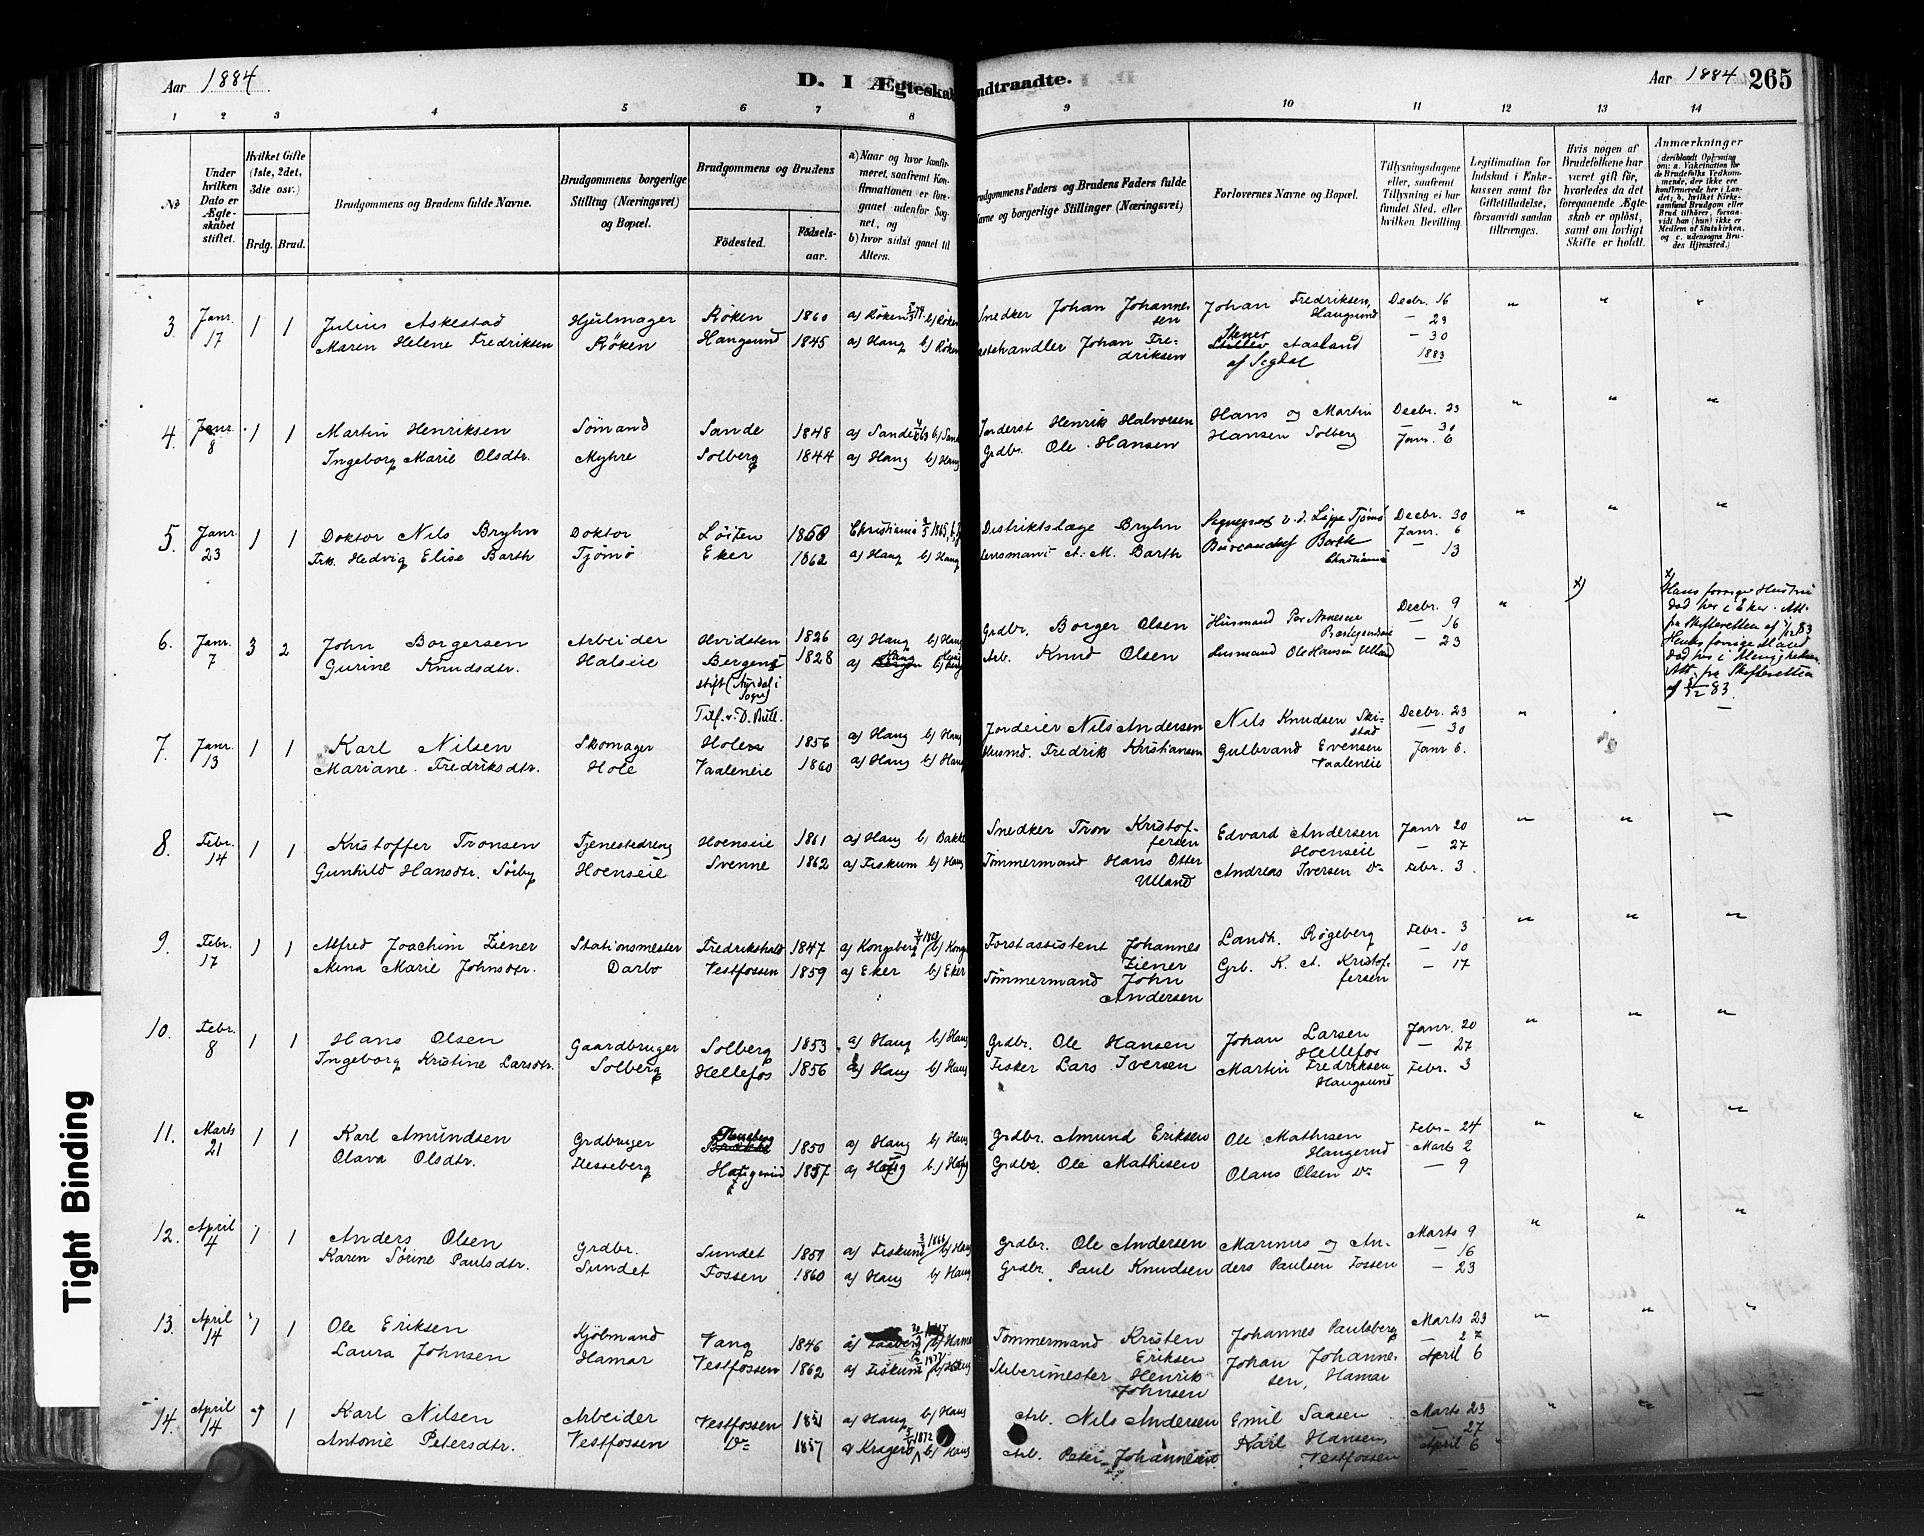 Aar 1884.
D. I Ægteskab Indtraadte.
Aar 1884 265
1 2 3 4 5 6 7 8 9 10 11 12 13 14
No
Under hvilken Dato er Ægteskabet stiftet.
Hvilket Gifte (1ste, 2det, 3die osv.)
Brdg. Brud.
Brudgommens og Brudens fulde Navne.
Brudgommens borgerlige Stilling (Næringsvei) og Bopæl.
Brudgommens og Brudens
Fødested. Fødselsaar.
a) Naar og hvor konfirmeret, saafremt Konfirmationen er foregaaet udenfor Sognet, og
b) hvor sidst gaaet til Alters.
Brudgommens Faders og Brudens Faders fulde Navne og borgerlige Stillinger (Næringsvei)
Forlovernes Navne og Bopæl.
Tillysningsdagene eller, saafremt Tillysning ei har fundet Sted, efter hvilken Bevilling.
Legitimation for Indskud i Enkekassen samt for Giftetilladelse, forsaavidt saadan tiltrænges.
Hvis nogen af Brudefolkene har været gift før, hvorledes da det foregaaende Ægteskab er opløst, samt om lovligt Skifte er holdt.
Anmærkninger
3 Janr. 17 1 1 Julius Askestad Hjulmager Røken 1860 a) Røken b) Røken Snedker Johan Johannesen Johan Fredriksen, Haugsund Decbr. 16 — 23
Maren Helene Fredriksen Røken Haugsund 1845 a) Haug b) Røken Johan Fredriksen Stener Aasland af Sigdal — 30 1883
4. Janr. 8 1 1 Martin Henriksen Sømand Sande 1848 a) Sande b) Sande Inderst Henrik Halvorsen Hans og Martin Decbr. 23 — 30
Ingeborg Marie Olsdtr. Myhre Solberg 1844 a) Haug b) Haug Grdbr. Ole Hansen Hansen Solberg Janr. 6
5. Janr. 23 1 1 Doktor Nils Bryhn Doktor Løiten 1850 Christiania Distriktslæge Bryhn Tjømø Decbr. 30 Janr. 6
Frk. Hedvig Elise Barth Tjømø Eker 1862 a) Haug b) Haug Lensmand A. M. Barth Barth Christiania — 13
6. Janr. 7 3 2 John Borgersen Arbeider Hvidsten 1826 a) Haug b) Haug Grdbr. Borger Olsen Husmand Per Decbr. 9 — 16
Gurine Knudsdtr. Halseie Bergens stift (Aurdal i Sogn) 1828 a) Haug Arb. Knud Olsen Husmand Ole Hansen Ulland — 23
x) Hans forrige Hustru død her i Eker. Att. fra Skifteretten af
Hendes forrige Mand død her i Menigheden. Att. fra Skifteretten af 83.
7. Janr. 13 1 1 Karl Nilsen Skomager 1856 a) Haug b) Haug Jordeier Nils Andersen Nils Knudsen Skistad Decbr. 23 — 30
Mariane Fredriksdtr. Hole Vaaleneie 1860 a) Haug b) Haug Husmd. Fredrik Kristiansen Gulbrand Evensen Vaaleneie Janr 6.
8. Febr. 14 1 1 Kristoffer Tronsen Tjenestedreng Hoenseie 1861 a) Haug Snedker Tron Kristoffersen Edvard Andersen Hoenseie Janr 20 — 27
Gunhild Hansdtr. Søiby Hoenseie Svenne 1862 a) Fiskum b) Haug Tømmermand Hans Otter Ulland Andreas Iversen Do Febr. 3.
9. Febr. 17 1 1 Alfred Joachim Ziener Stationsmester Fredrikshald 1847 a) Kongsberg 1863 Forstassistent Johannes Ziener Landh. Røgeberg Febr. 3 — 10
Mina Marie Johnsdtr. Darbo Vestfossen 1859 a) Eker b) Eker Tømmermand John Andersen Grb. K. A. Kristoffersen — 17
10. Febr. 8 1 1 Hans Olsen Gaardbruger Solberg 1853 a) Haug b) Haug Grdbr. Ole Hansen Johan Larsen Hellefos Janr. 20 — 27
Ingeborg Kristine Larsdtr. Solberg Hellefos 1856 a) Haug b) Haug Fisker Lars Iversen Martin Fredriksen Haugsund Febr. 3
11. Marts 21 1 1 Karl Amundsen Grdbruger 1850 a) Haug b) Haug Grdbr. Amund Eriksen Ole Mathisen Haugerud Febr. 24 Marts 2
Olava Olsdtr. Flesseberg Haugerud 1857 a) Haug b) Haug Grdbr. Ole Mathisen Olaus Olsen Do — 9
12. April 4 1 1 Anders Olsen Grdbr. Sundet 1851 a) Fiskum b) Haug Grdbr. Ole Andersen Marinus og An- Marts 9 — 16
Karen Sørine Paulsdtr. Sundet Fossen 1860 a) Haug b) Haug Grdbr. Paul Knudsen ders Paulsen Fossen — 23
13. April 14 1 1 Ole Eriksen Kjøbmand Vang 1846 b) Hamar Tømmermand Kristen Eriksen Johannes Paulsberg Marts 23 — 27
Laura Johnsen Hamar Vestfossen 1862 a) Fiskum b) Haug Sliberimester Henrik Johnsen Johan Johannesen, Hamar April 6
14. April 14 1 Karl Nilsen Arbeider Vestfossen 1851 a) Haug b) Haug Arb. Nils Andersen Emil Saasen Marts 23 27
Antonie Petersdtr. Vestfossen Do 1857 a) Kragerø 1872 b) Haug Arb. Peter Karl Hansen, Vestfossen April 6
Tight Binding